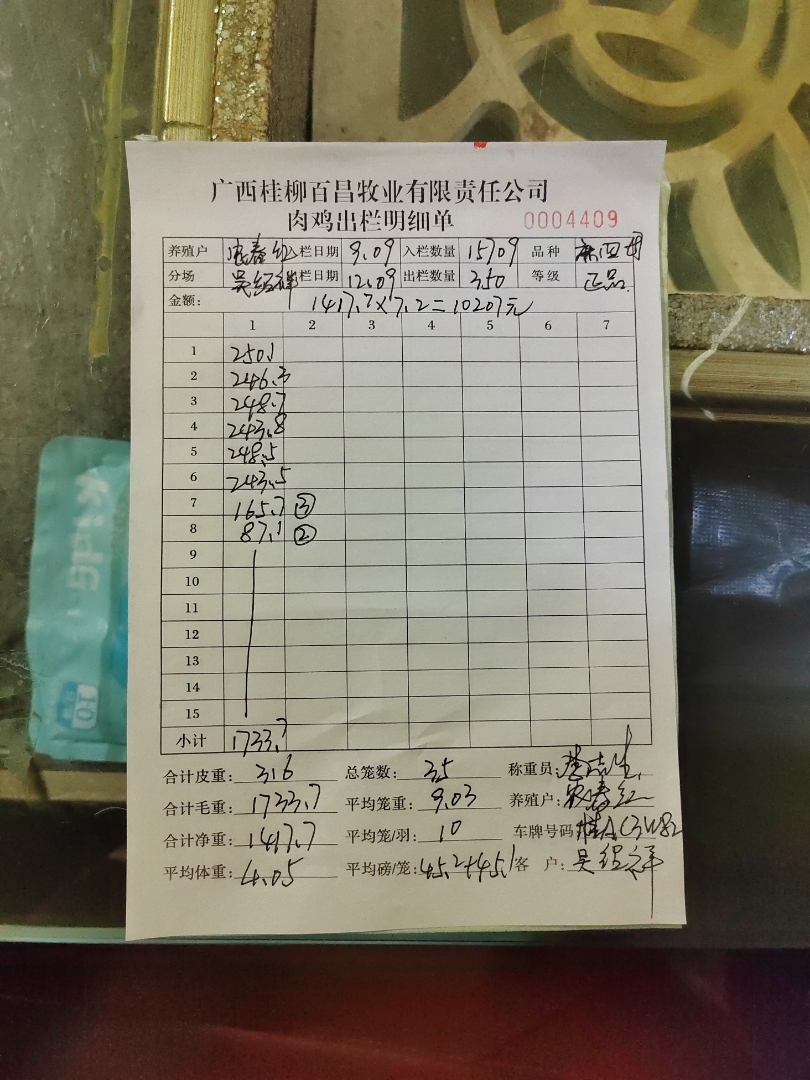 广西桂柳百昌牧业有限责任公司
肉鸡出栏明细单 0004409
养殖户 入栏日期 9.09 入栏数量 15709 品种
分场 吴绍祥 栏日期 12.09 出栏数量 350 等级 正品
金额: 1417.7×7.2=10207元
1 2 3 4 5 6 7
1 250.1
2 246.3
3 248.7
4 243.8
5 248.5
6 243.5
7 165.7 ③
8 87.1 ②
9
10
11
12
13
14
15
小计 1733.7
合计皮重: 316 总笼数: 35 称重员:
合计毛重: 1733.7 平均笼重: 9.03 养殖户:
合计净重: 1417.7 平均笼/羽: 10 车牌号码
平均体重: 4.05 平均磅/笼: 45.2+45.1 客 户: 吴绍祥